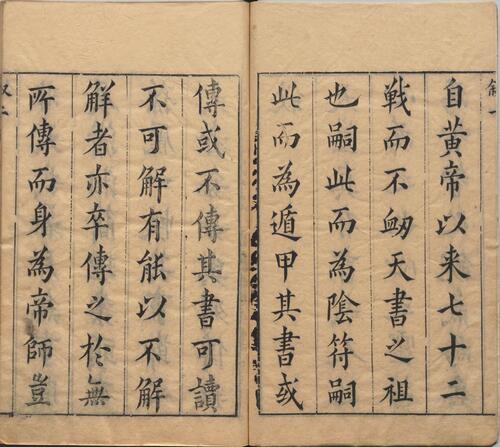 自黄帝以来七十二
戰而不衂天書之祖
也嗣此而為陰符嗣
此而為遁甲其書或
傳或不傳其書可讀
不可解有能以不解
解者亦卒傳之於無
所傳而身為帝師豈